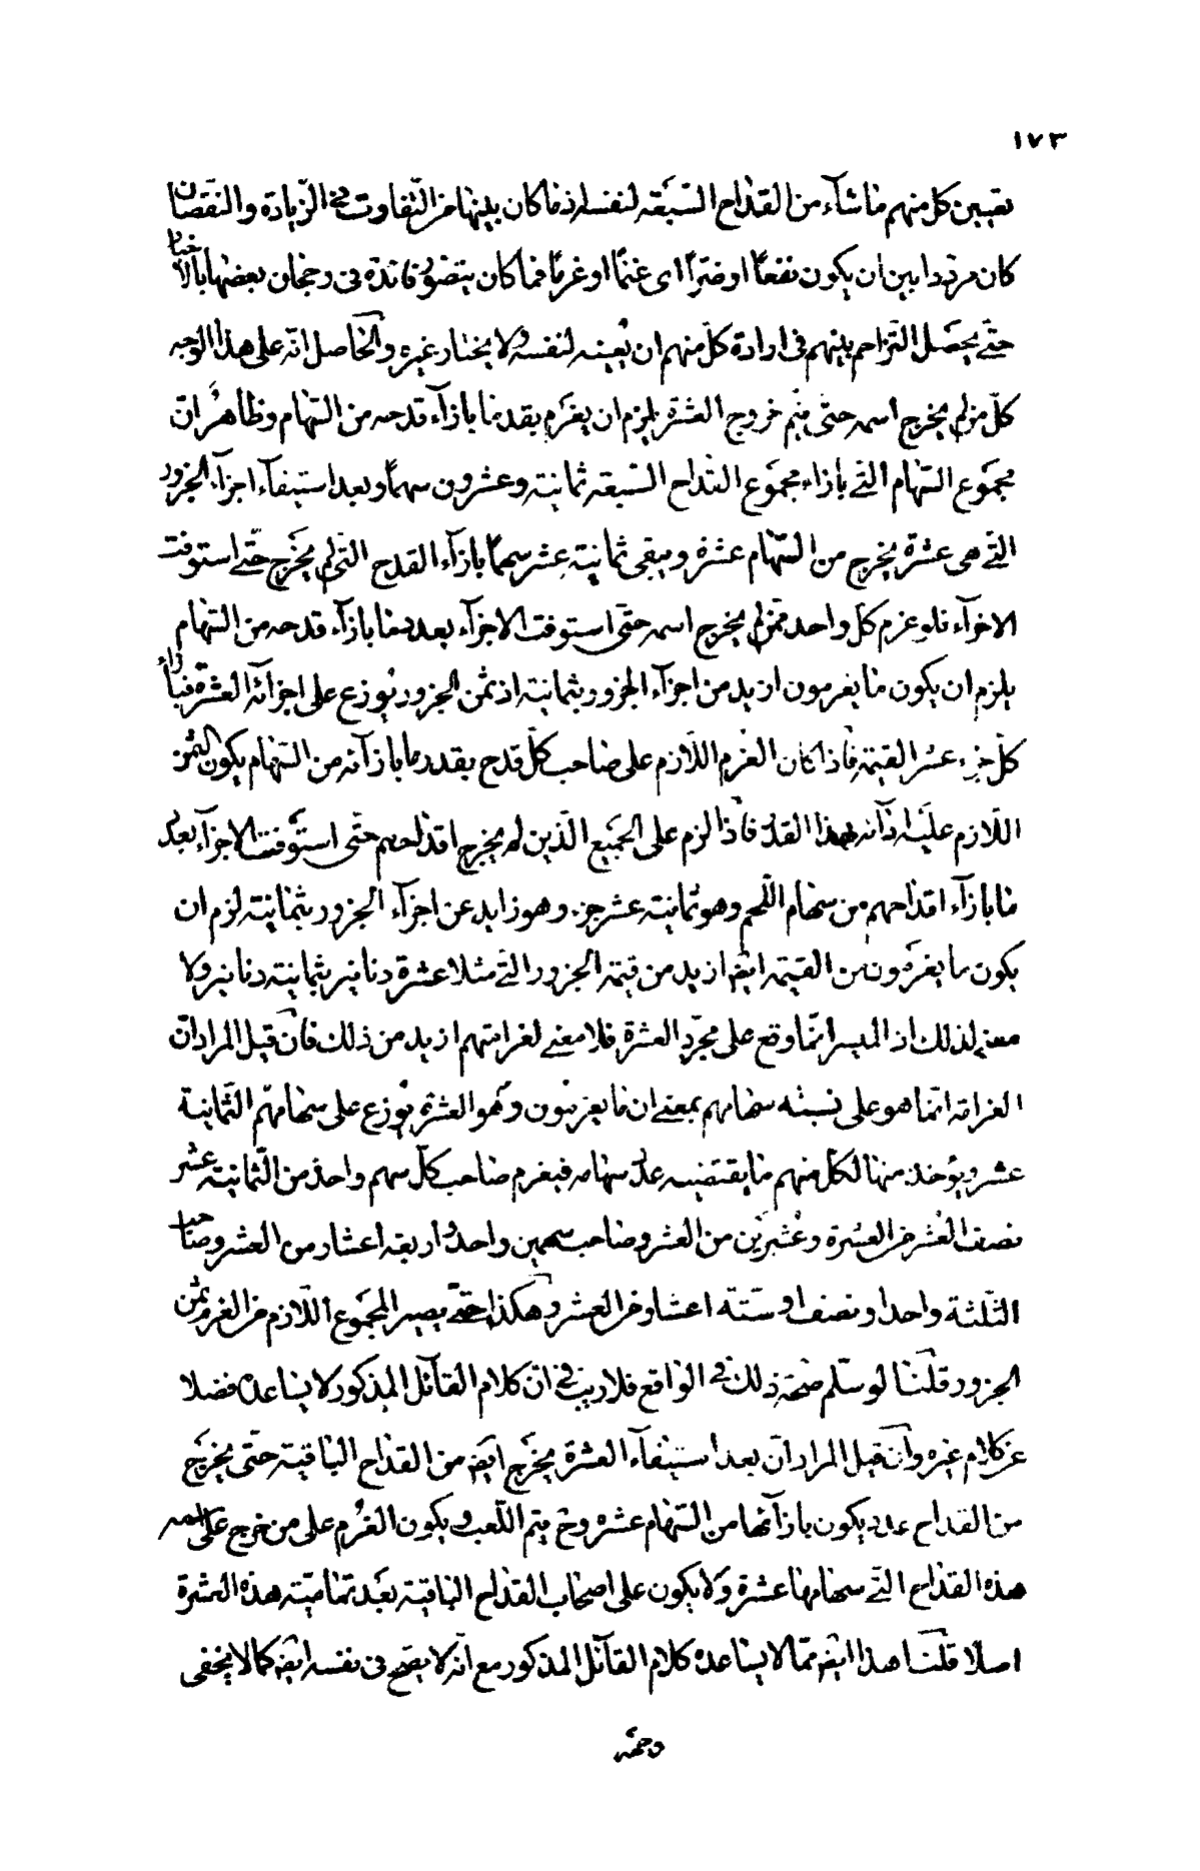 ١٧٣
تعيين كل منهم ما شآء من القداح السّبعة لنفسه اذ ما كان بينها من التّفاوت في الزّيادة والنّقصان
كان مردّدا بين ان يكون نفعًا او ضرّا اى غنمًا او غرمًا فما كان يتصوّر فائدة فى رجحان بعضها بالاختيار
حتّى يحصل التّزاحم بينهم فى ارادة كلّ منهم ان يعينه لنفسه ولا يختار غيره والحاصل انّه على هذا الوجه
كلّ من لم يخرج اسمه حتّى يتم خروج العشرة يلزم ان يغرم بقدر ما بازآء قدحه من السّهام وظاهر انّ
مجموع السّهام الّتى بازاء مجموع القداح السّبعة ثمانية وعشرون سهمًا وبعد استيفآء اجزآء الجزور
الّتى هى عشرة يخرج من السّهام عشرة ويبقى ثمانية عشر سهمًا بازآء القدح الّتى لم يخرج حتّى استوفت
الاجزآء فلو غرم كل واحد ممّن لم يخرج اسمه حتّى استوفت الاجزآء بعدد ما بازآء قدحه من السّهام
يلزم ان يكون ما يغرمون ازيد من اجزآء الجزور بثمانية اذ ثمن الجزور يوزع على اجزآئه العشرة فبازاء
كلّ جزء عشر القيمة فاذا كان الغرم اللّازم على صاحب كلّ قدح بقدر ما بازآئه من السّهام يكون الثمن
اللّازم عليه ازآئه بهذا القدر فاذا لزم على الجميع الّذين لم يخرج اقداحهم حتّى استوفت الاجزآء بعدد
ما بازآء اقداحهم من سهام اللّحم وهو ثمانية عشر جزء وهو زايد عن اجزآء الجزور بثمانية لزم ان
يكون ما يغرمون من القيمة ايضا ازيد من قيمة الجزور الّتى مثلا عشرة دنانير بثمانية دنانير ولا
معنى لذلك اذ الميسر انّما وقع على مجرّد العشرة فلا معنى لغرامتهم ازيد من ذلك فان قيل المراد انّ
الغرامة انّما هو على نسبة سهامهم بمعنى ان ما يغرمون وهو العشرة يوزع على سهامهم الثّمانية
عشر ويؤخذ منها لكل منهم ما يقتضيه عدد سهامه فيغرم صاحب كلّ سهم واحد من الثّمانية عشر
نصف العشر من العشرة وعُشرين من العشر وصاحب سهمين واحد واربعة اعشار من العشر وصاحب
الثّلثة واحدا ونصف او ستّة اعشار من العشر وهكذا حتّى يصير المجموع اللّازم من الغرم ثمن
الجزور قلنا لو سلّم صحة ذلك فى الواقع فلا ريب فى انّ كلام القآئل المذكور لا يساعده فضلا
عن كلام غيره وان قيل المراد ان بعد استيفآء العشرة يخرج ايضا من القداح الباقية حتّى يخرج
من القداح عدد يكون بازآئها من السّهام عشره وح يتم اللّعب ويكون الغرم على من خرج على اسمه
هذه القداح الّتى سهامها عشرة ولا يكون على اصحاب القداح الباقية بعد تمامية هذه العشرة
اصلا قلنا هذا ايضا ممّا لا يساعده كلام القآئل المذكور مع انّه لا يصح فى نفسه ايضا كما لا يخفى